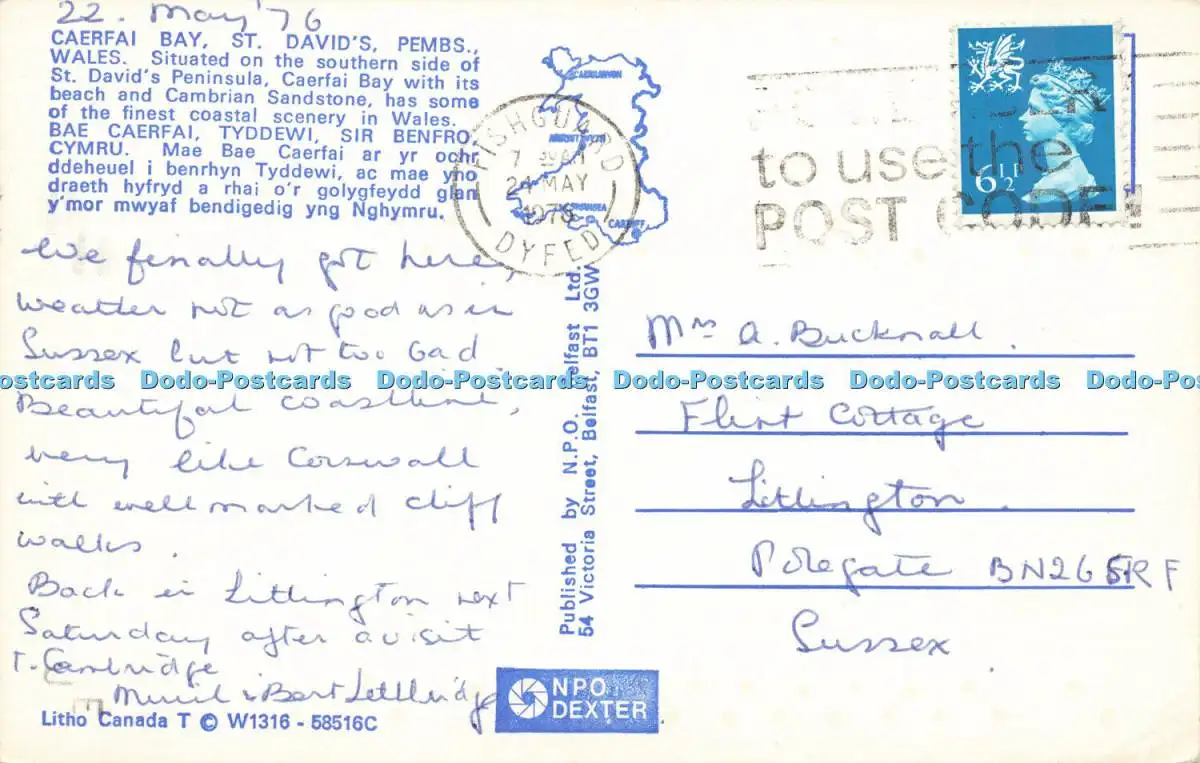 22. May '76
CAERFAI BAY, ST. DAVID'S, PEMBS.,
WALES. Situated on the southern side of
St. David's Peninsula, Caerfai Bay with its
beach and Cambrian Sandstone, has some
of the finest coastal scenery in Wales.
BAE CAERFAI, TYDDEWI, SIR BENFRO,
CYMRU. Mae Bae Caerfai ar yr ochr
ddeheuel i benrhyn Tyddewi, ac mae yno
draeth hyfryd a rhai o'r golygfeydd glan
y'mor mwyaf bendigedig yng Nghymru.
We finally got here,
weather not as good as in
Sussex but not too bad
Beautiful coastline,
very like Cornwall
with well marked cliff
walks.
Back in Litlington next
Saturday after a visit
t. Cambridge
Muriel & Bert
Litho Canada T © W1316 - 58516C
CAERNARVON
CARDIFF
FISHGUARD
7 30AM
24 MAY
1976
DYFED
Published by N.P.O. Belfast Ltd.
54 Victoria Street, Belfast, BT1 3GW
NPO
DEXTER
to use the
POST CODE!
6½P
Mrs A. Bucknall.
Flint Cottage
Litlington.
Polegate BN26 5RF
Sussex
Dodo-Postcards Dodo-Postcards Dodo-Postcards Dodo-Postcards Dodo-Postcards